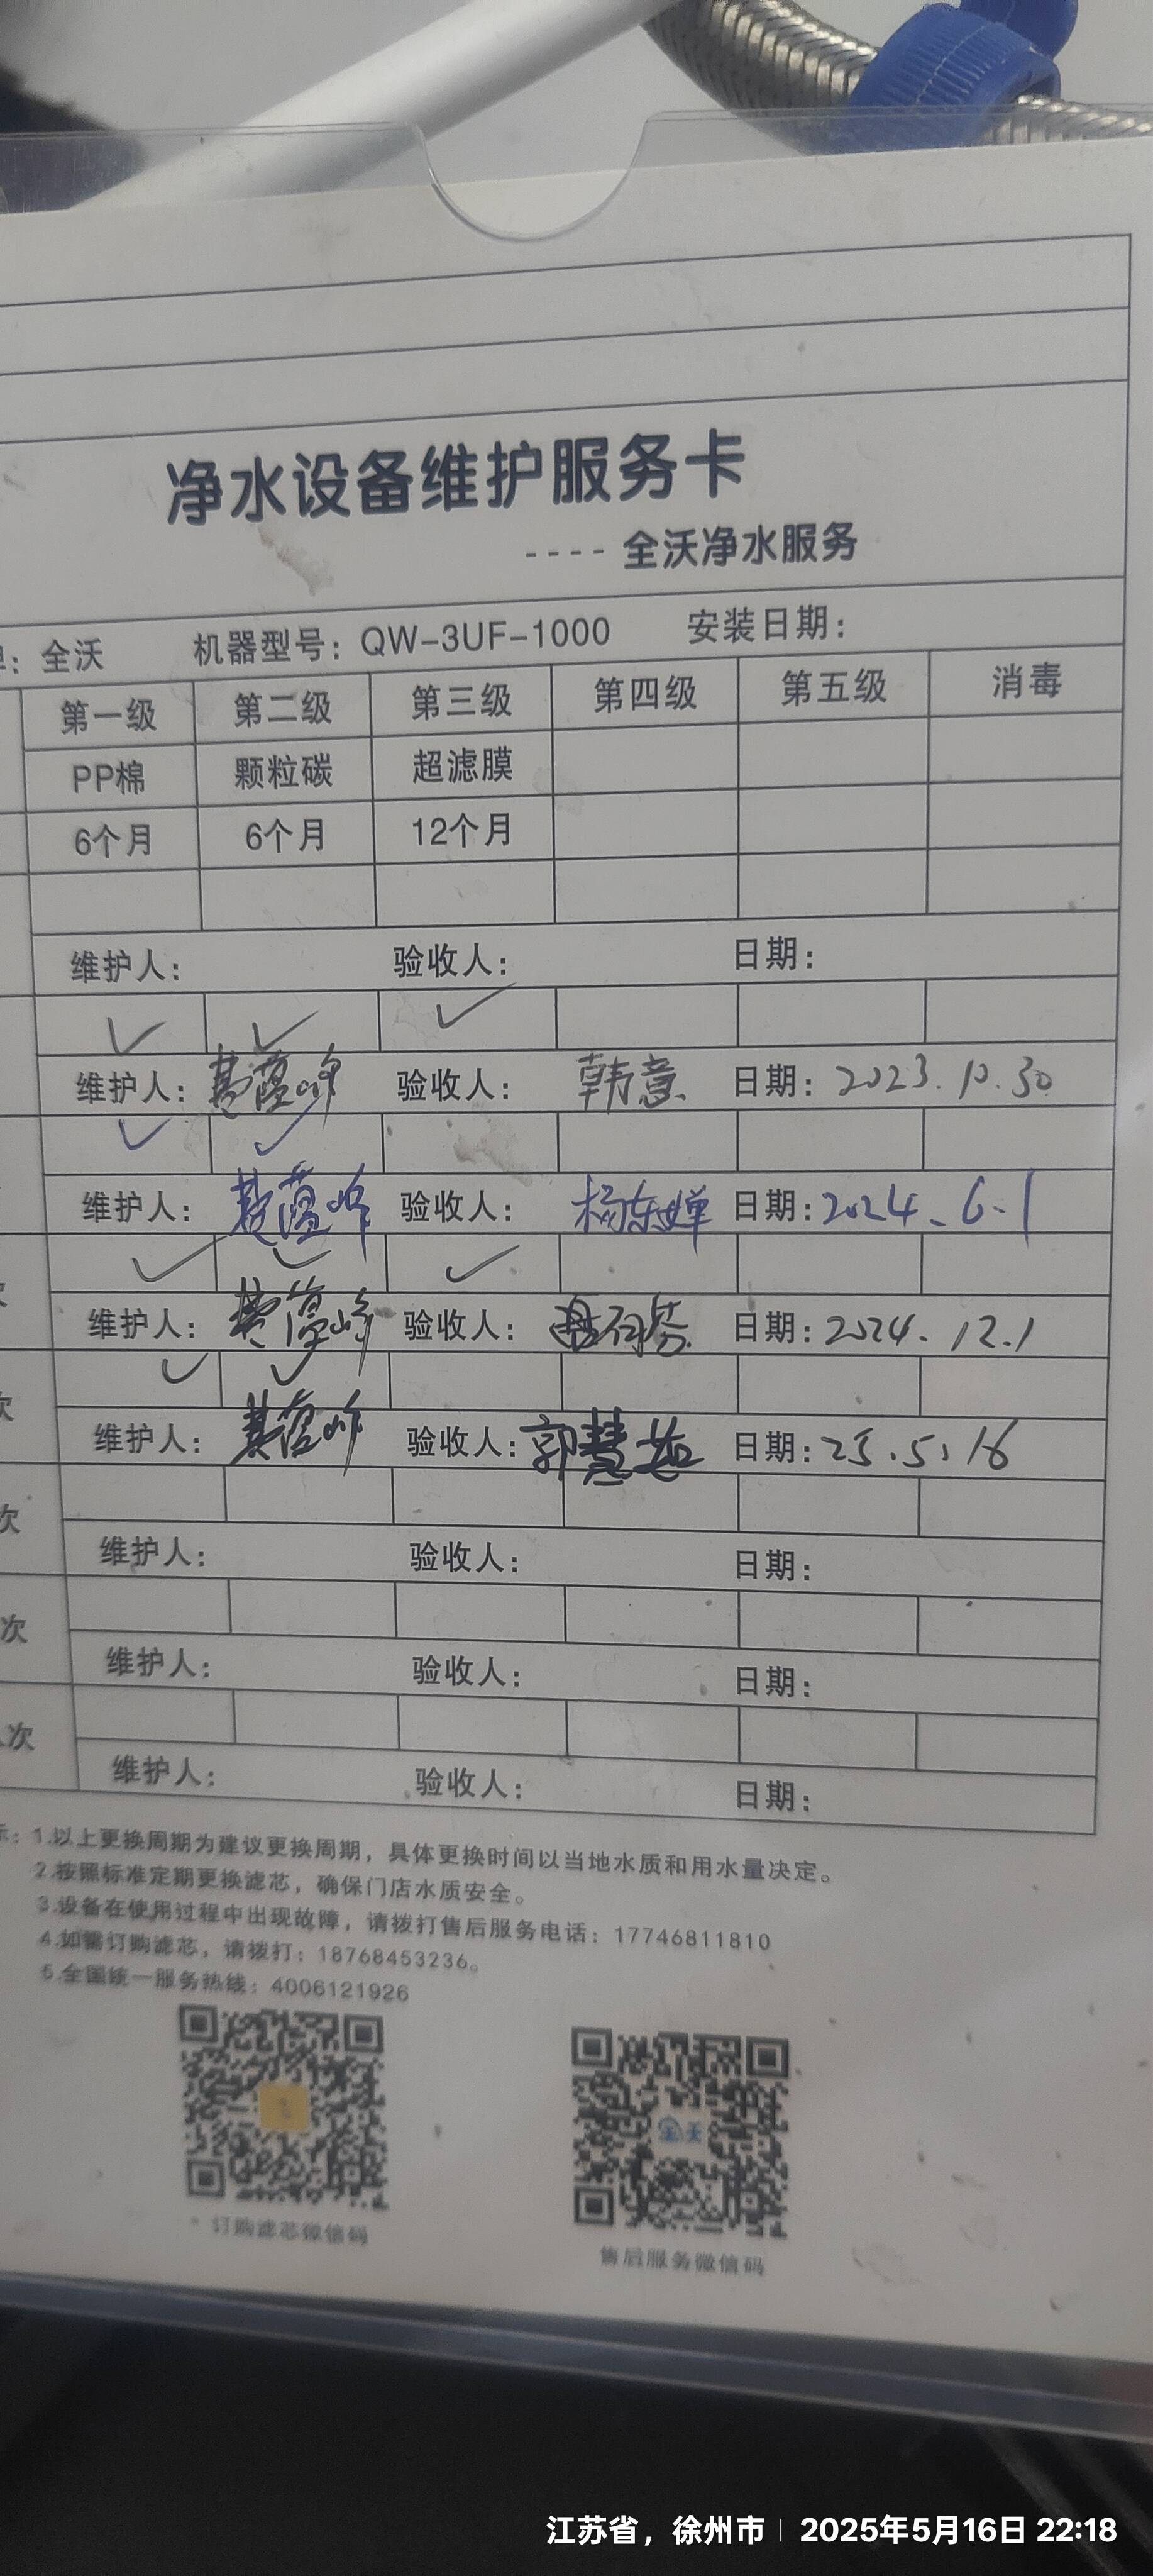 净水设备维护服务卡
---- 全沃净水服务
: 全沃 机器型号: QW-3UF-1000 安装日期:
第一级 第二级 第三级 第四级 第五级 消毒
PP棉 颗粒碳 超滤膜
6个月 6个月 12个月
维护人: 验收人: 日期:
✓ ✓ ✓
维护人: 验收人: 韩意 日期: 2023.10.30
✓ ✓
维护人: 验收人: 杨东婵 日期: 2024.6.1
✓ ✓ ✓
维护人: 验收人: 日期: 2024.12.1
次
✓ ✓
维护人: 验收人: 郭慧 日期: 25.5.16
次
维护人: 验收人: 日期:
次
维护人: 验收人: 日期:
次
维护人: 验收人: 日期:
示: 1.以上更换周期为建议更换周期，具体更换时间以当地水质和用水量决定。
2.按照标准定期更换滤芯，确保门店水质安全。
3.设备在使用过程中出现故障，请拨打售后服务电话: 17746811810
4.如需订购滤芯，请拨打: 18768453236。
5.全国统一服务热线: 4006121926
订购滤芯微信码 售后服务微信码
江苏省，徐州市 | 2025年5月16日 22:18